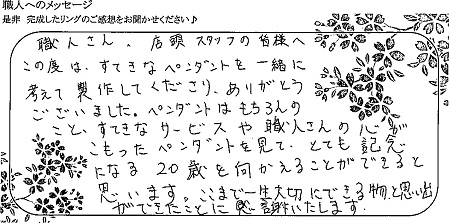 職人へのメッセージ
是非 完成したリングのご感想をお聞かせください♪
職人さん、店頭スタッフの皆様へ
この度は、すてきなペンダントを一緒に
考えて製作してくださり、ありがとう
ございました。ペンダントはもちろんの
こと、すてきなサービスや職人さんの心が
こもったペンダントを見て、とても記念
になる20歳を向かえることができると
思います。ここまで一生大切にできる物と思い出
ができたことに感謝いたします。